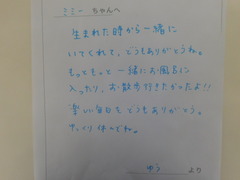 ミミー ちゃんへ
生まれた時から一緒に
いてくれて、どうもありがとうね。
もっともっと一緒にお風呂に
入ったり、お散歩行きたかったよ!!
楽しい毎日をどうもありがとう。
ゆっくり休んでね。
ゆう より